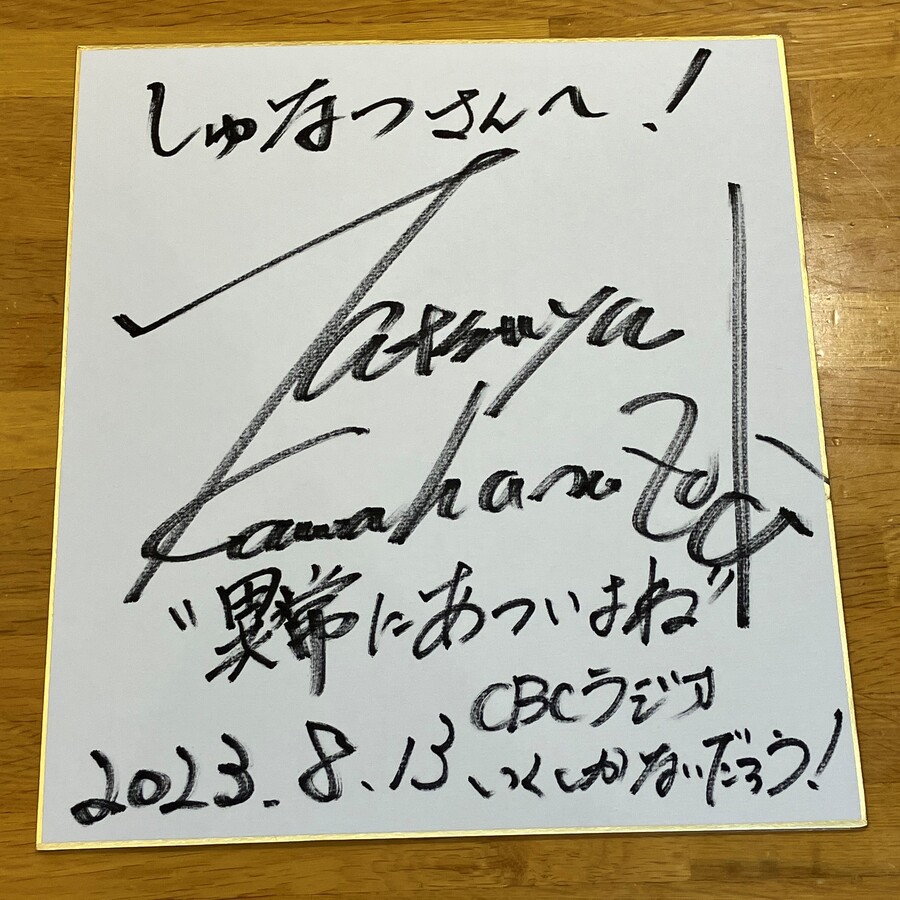 しゅなつさんへ！
Tatsuya
Kawahara
"異常にあついよね"
CBCラジオ
2023.8.13 いくしかないだろう！